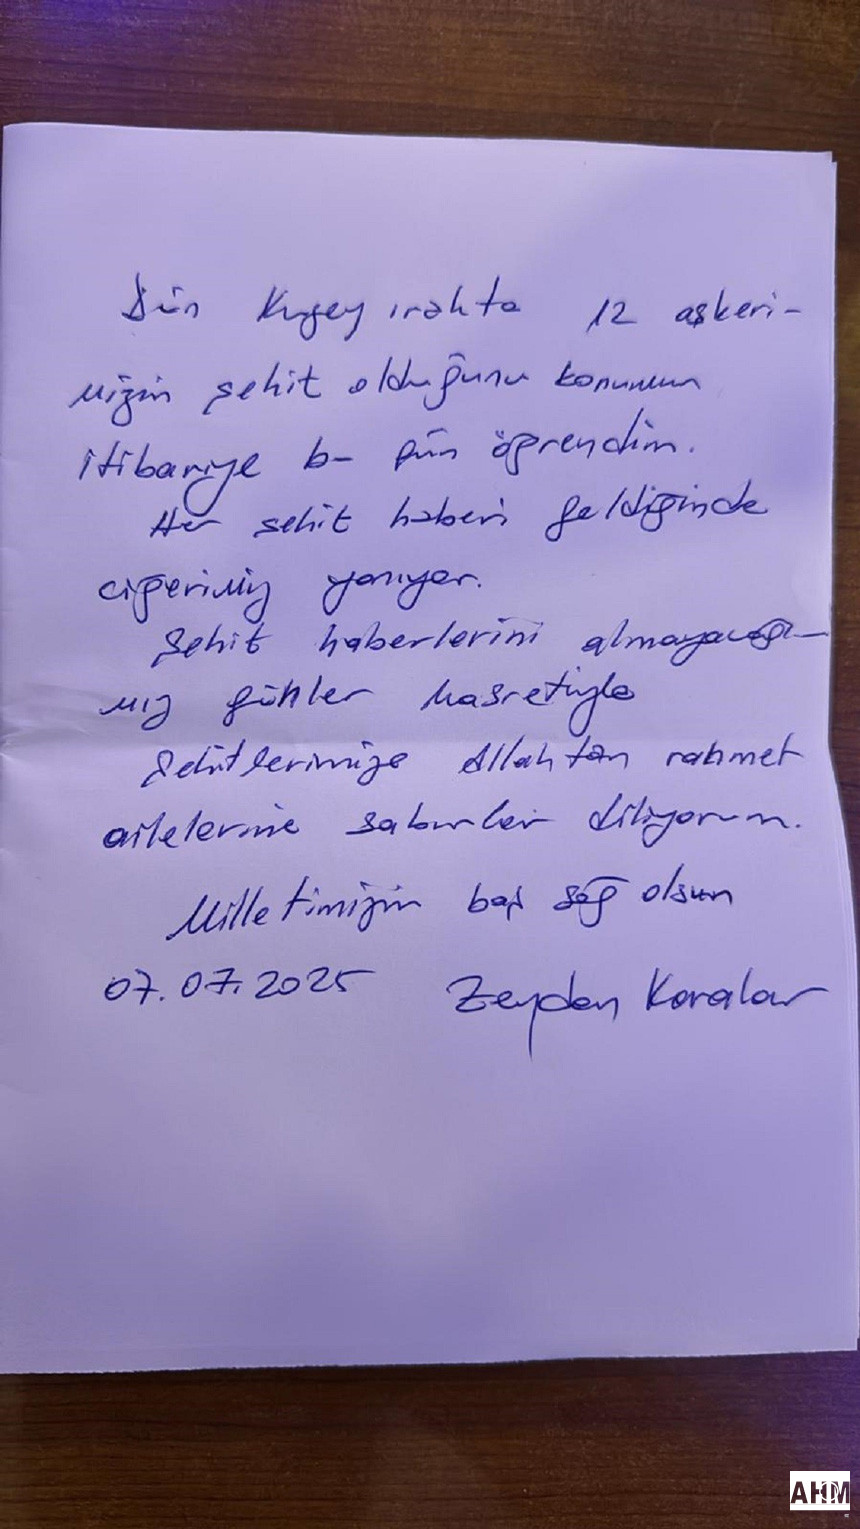 Dün Kuzey ırakta 12 askeri-
mizin şehit olduğunu konumum
itibariyle bu gün öğrendim.
Her şehit haberi geldiğinde
ciğerimiz yanıyor.
Şehit haberlerini almayacağı-
mız günler hasretiyle
Şehitlerimize Allahtan rahmet
ailelerine sabırlar diliyorum.
Milletimizin baş sağ olsun
07.07.2025 Zeydan Karalar
AHM